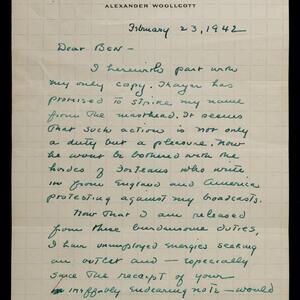 ALEXANDER WOOLLCOTT
February 23, 1942
Dear Ben -
I herewith part with
my only copy. Thayer has
promised to strike my name
from the masthead. It seems
that such action is not only
a duty but a pleasure. Now
he wont be bothered with the
hordes of Forteans who write
in from England and America
protesting against my broadcasts.
Now that I am released
from these burdensome duties,
I have unemployed energies seeking
an outlet and - especially
since the receipt of your
ineffably endearing note - would